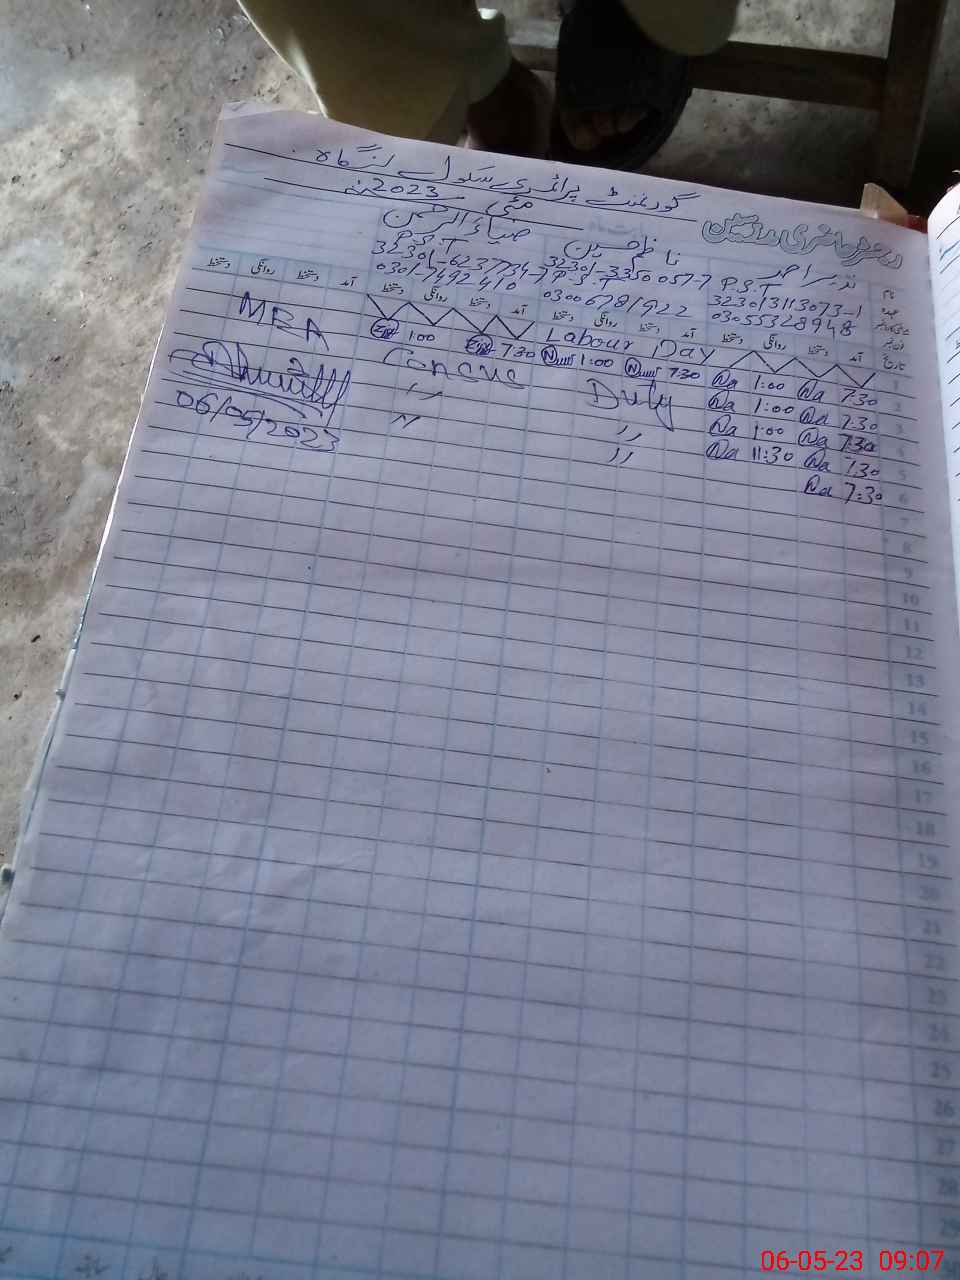 گورنمنٹ پرائمری سکول لنگاہ
مئی 2023
رجسٹر حاضری مدرسین
نام نذیر احمد ناظم حسین ضیاء الرحمن
عہدہ P.S.T P.S.T P.S.T
323013113073-1 32301-3350057-7 32301-6237734-7
03055328948 03006781922 0301-7492410
تاریخ آمد دستخط روانگی دستخط آمد دستخط روانگی دستخط آمد دستخط روانگی دستخط آمد دستخط روانگی دستخط
1 Labour Day
2 7:30 Na 1:00 Na 7:30 1:00 7:30 1:00
3 7:30 Na 1:00 Na Duty Census
4 7:30 Na 1:00 Na " "
5 7:30 Na 11:30 Na " "
6 7:30 Na
7
8
9
10
11
12
13
14
15
16
17
18
19
20
21
22
23
24
25
26
27
28
29
MEA
06/05/2023
06-05-23 09:07